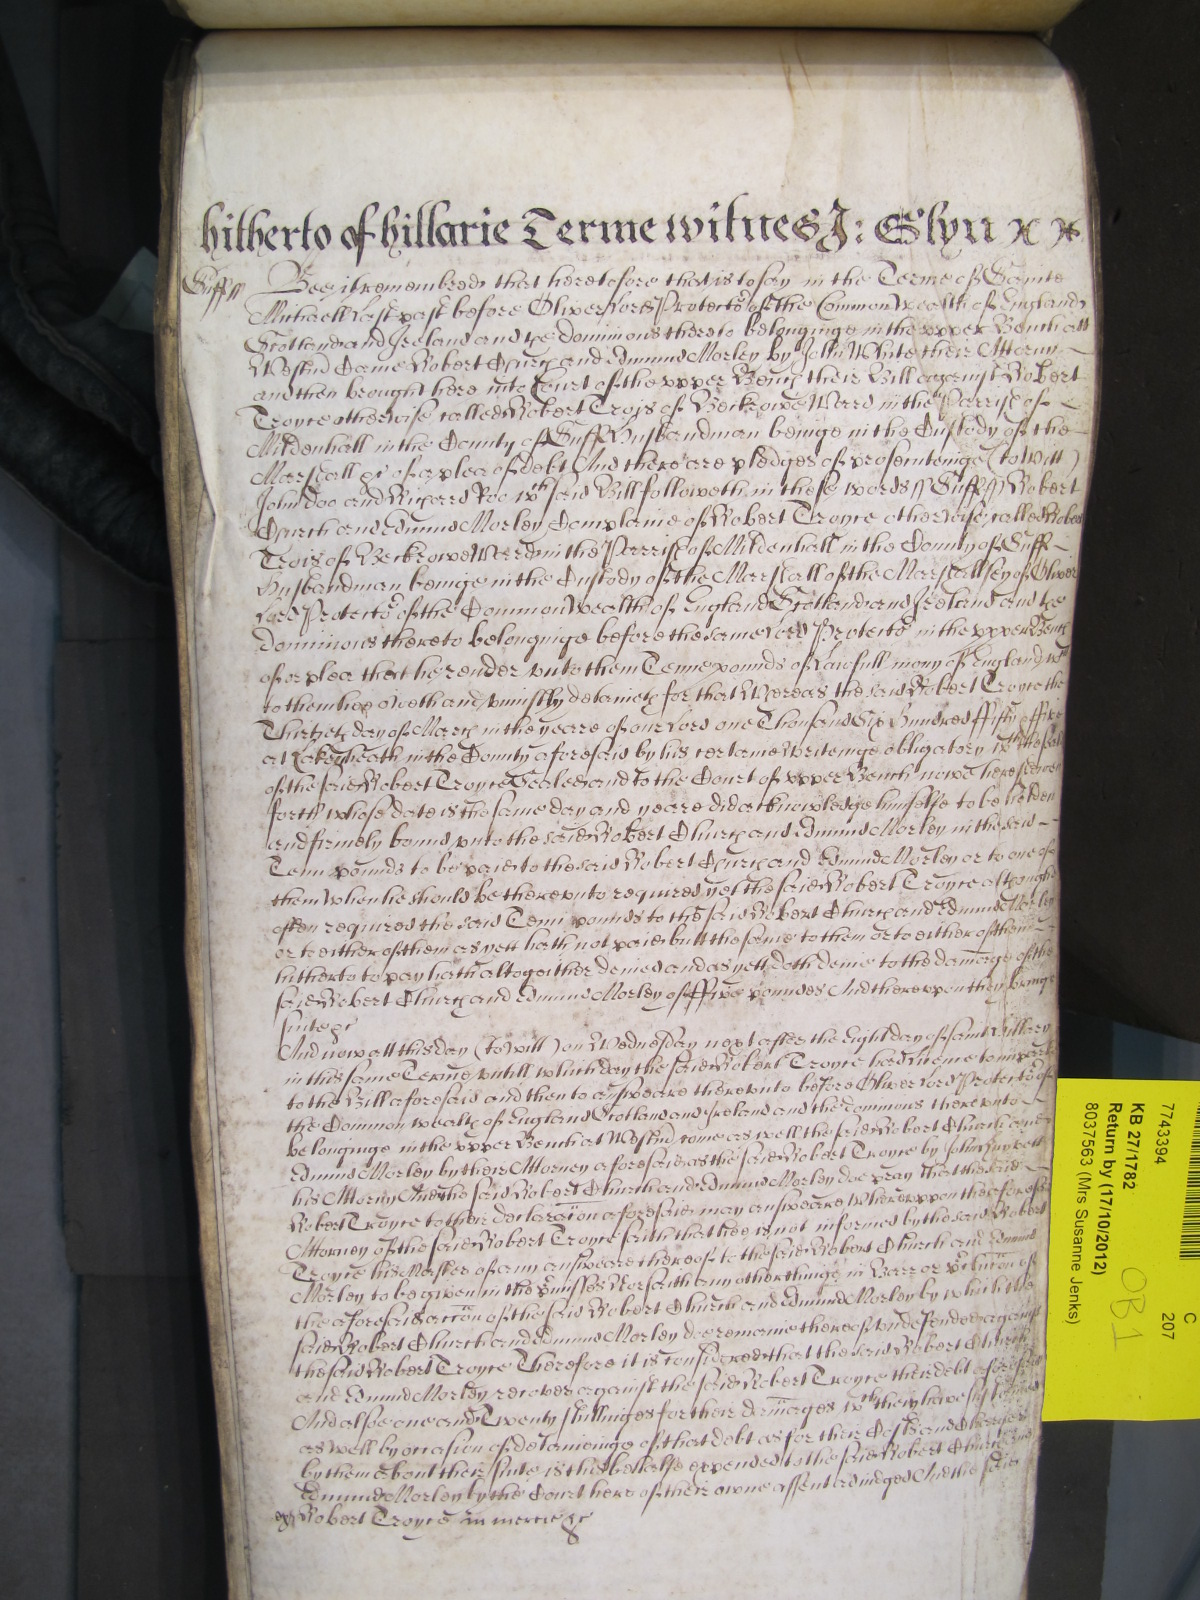 hitherto of hillarie Terme witnes J: Glyn x x
Suff ss Bee it remembred that heretofore that is to say in the Terme of Sainte
Michaell last past before Oliver Lord Protector of the Common Wealth of England
Scotland and Ireland and the dominions thereto belonginge in the upper Bench att
Westm̃ Came Robert Church and Edmund Morley by John White their Attorny
and then brought here into Court of the upper Bench their Bill against Robert
Troyce otherwise called Robert Trois of Beckrowe Ward in the Parrish of
Mildenhall in the County of Suff Husbandman beinge in the Custody of the
Marshall &c of a plea of debt And there are pledges of prosecuteinge (to witt)
John Doo and Richard Roo wch said Bill followeth in these words ss Suff ss Robert
Church and Edmund Morley Complaine of Robert Troyce otherwise called Robert
Trois of Beckrowe Ward in the Parrish of Mildenhall in the County of Suff
Husbandman beinge in the Custody of the Marshall of the Marshallsey of Oliver
Lord Protector of the Common Wealth of England Scotland and Ireland and the
dominions thereto belonginge before the same Lord Protector in the upper Bench
of a plea that he render unto them Tenne pounds of lawfull mony of England wch
to them hee oweth and uniustly detaineth for that Whereas the said Robert Troyce the
Thirtieth day of March in the yeare of our Lord one Thousand Six Hundred fifty five
at Lakenheath in the County aforesaid by his certaine writeinge obligatory wth the seale
of the said Robert Troyce Sealed and to the Court of upper Bench nowe here shewen
forth whose date is the same day and yeare did acknowledge himselfe to be holden
and firmely bound unto the said Robert Church and Edmund Morley in the said
Tenn pounds to be paid to the said Robert Church and Edmund Morley or to one of
them when he should be thereunto required yet the said Robert Troyce although
often required the said Tenn pounds to the said Robert Church and Edmund Morley
or to either of them as yett hath not paid but the same to them or to either of them
hitherto to pay hath altogeither denied and as yett doth denie to the damage of the
said Robert Church and Edmund Morley of ffive poundes And thereupon they bringe
suite &c
And now att this day (to witt) on Wednesday next after the Eight day of saint Hillary
in this same Terme untill which day the said Robert Troyce had licence to imparle
to the Bill aforesaid and then to answeare thereunto before Oliver Lord Protector of
the Common wealth of England Scotland and Ireland and the dominions thereunto
belonginge in the upper Bench at Westm̃ come as well the said Robert Church and
Edmund Morley by their Attorney aforesaid as the said Robert Troyce by John
his Attorny And the said Robert Church and Edmund Morley doe pray that the said
Robert Troyce to their declaration aforesaid may answeare Whereuppon the aforesaid
Attorney of the said Robert Troyce saith that hee is not informed by the said Robert
Troyce his Master of any answeare thereof to the said Robert Church and Edmund
Morley to be given in the pr̃misses Nor saith any other thinge in Barr or preclucõn of
the aforesaid accõn of the said Robert Church and Edmund Morley by which the
said Robert Church and Edmund Morley doe remaine thereof undefended against
the said Robert Troyce Therefore it is considered that the said Robert Church
and Edmund Morley recover against the said Robert Troyce their debt aforesaid
And alsoe one and Twenty shillinges for their dam̃ages wch they have susteined
as well by occasion of detaininge of that debt as for their Costs and Charges
by them about their suite in this behalfe expended to the said Robert Church and
Edmund Morley by the Court here of their owne assent adiudged And the said
Robert Troyce in mercie &c
C
207
77433394
KB 27/1782
Return by (17/10/2012)
8037563 (Mrs Susanne Jenks)
OB 1